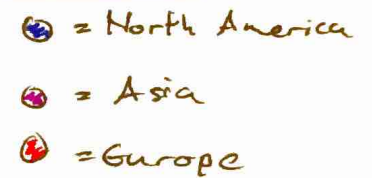 = North America
= Asia
= Europe